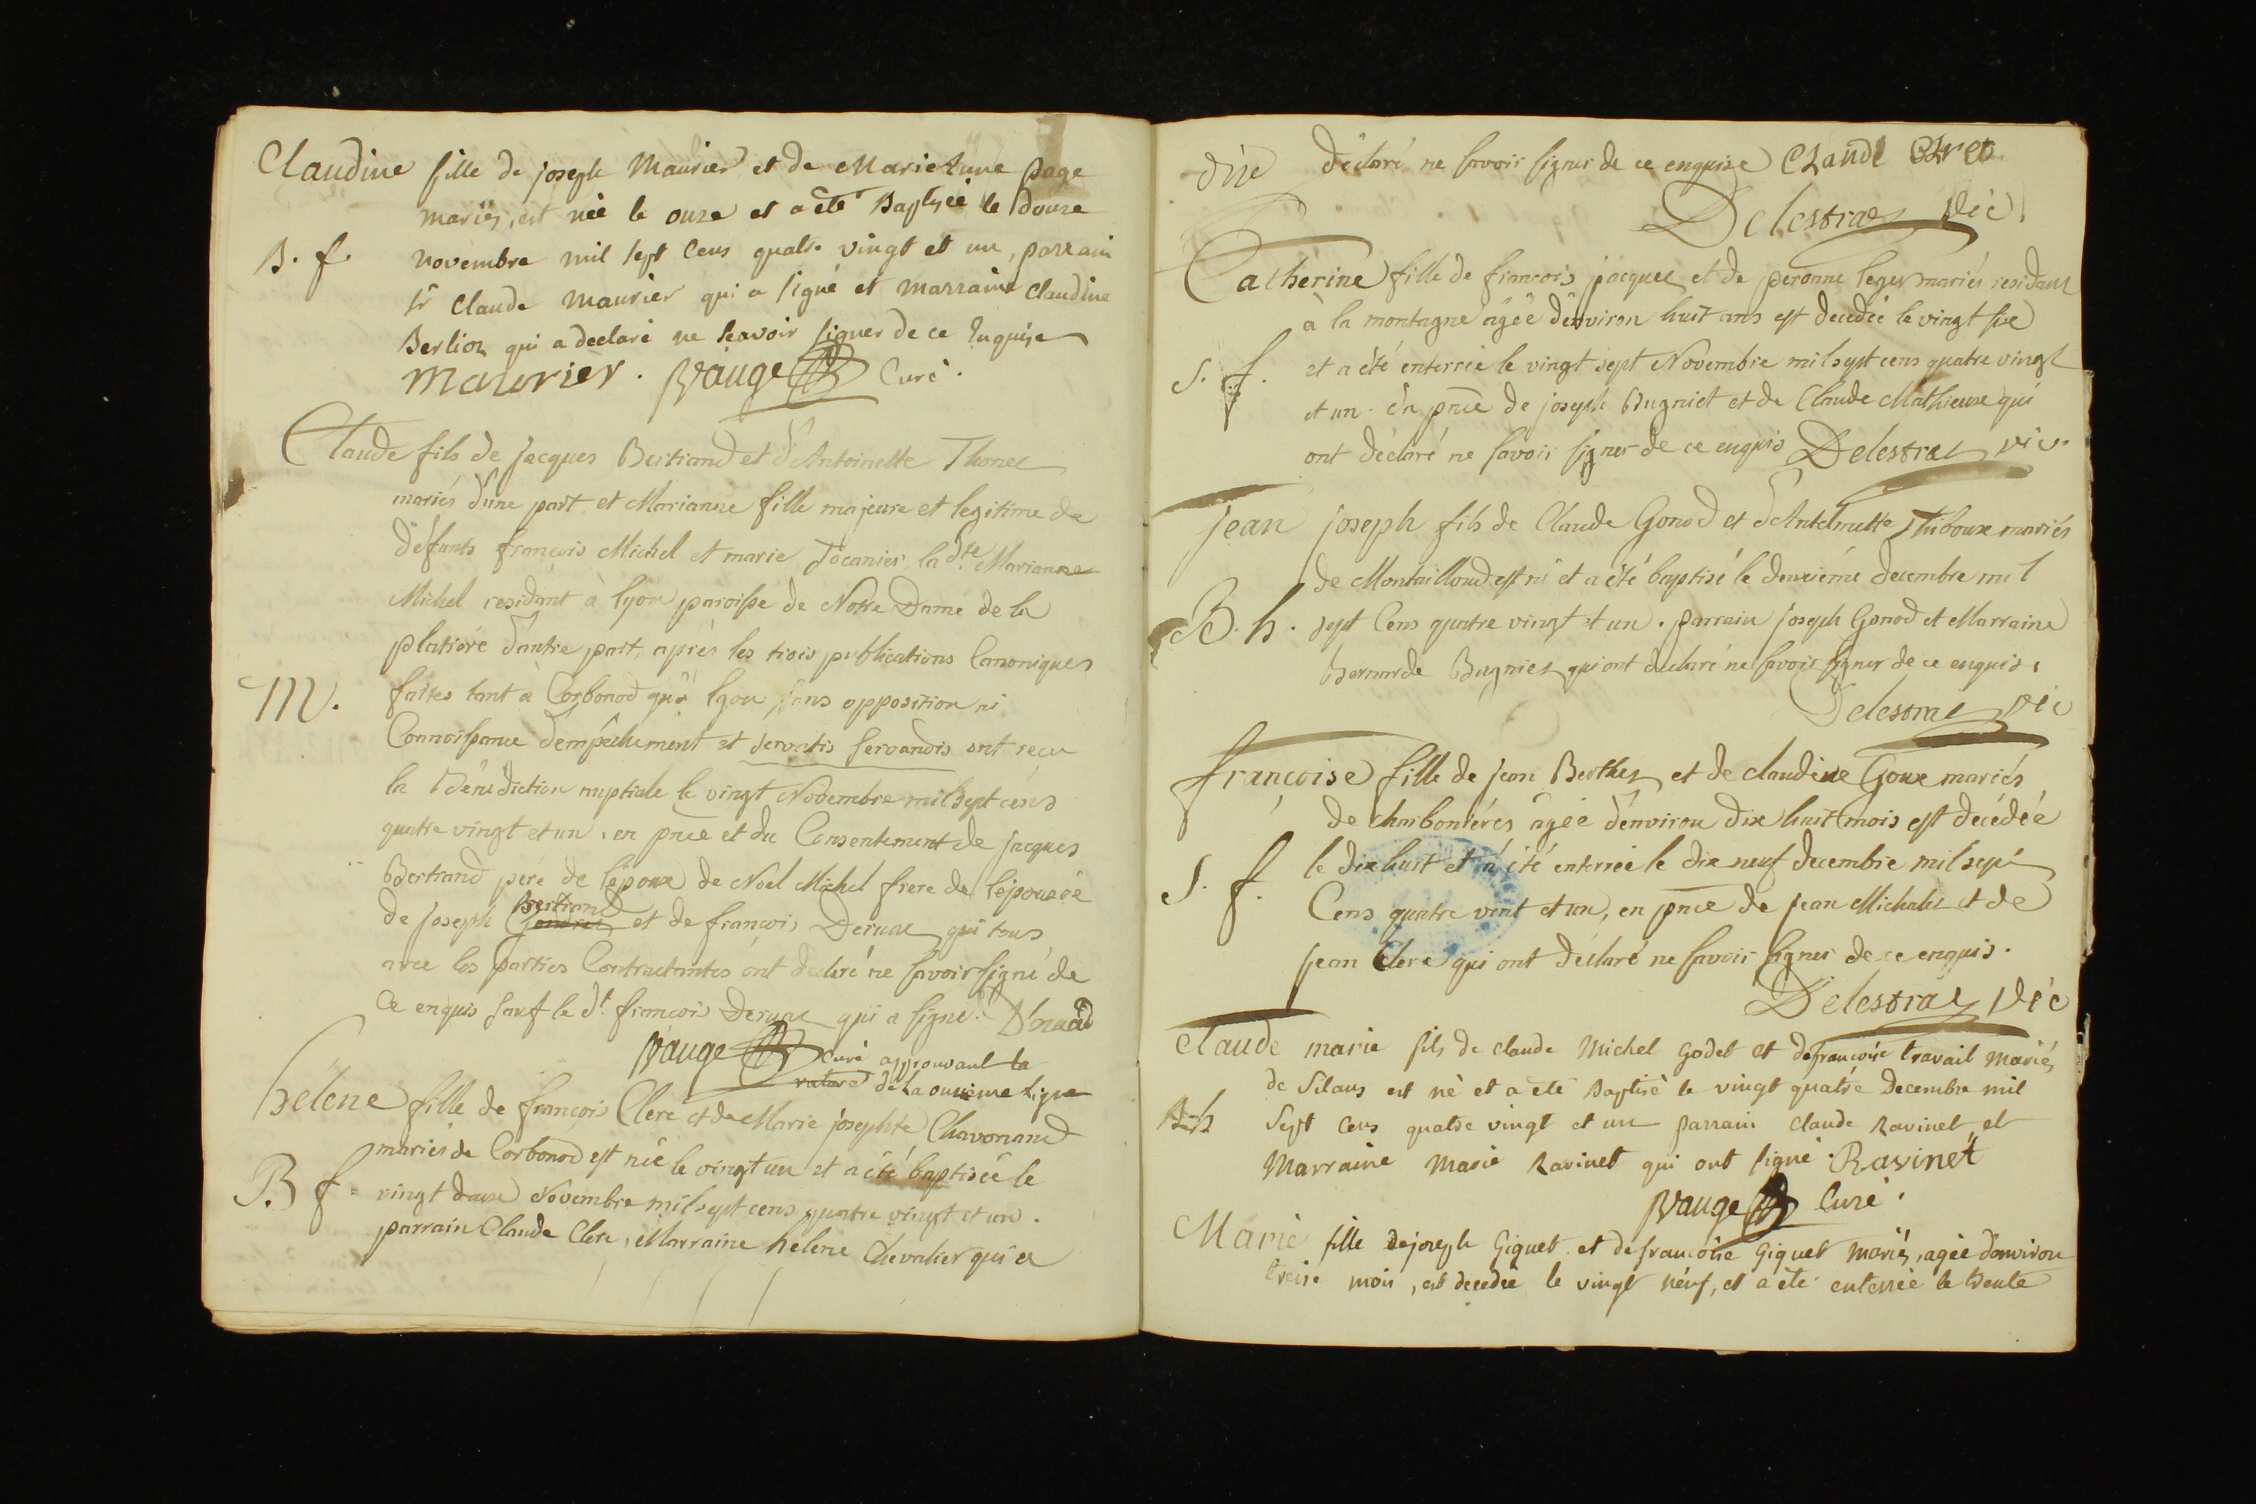 Claudine fille de joseph Maurier et de Marie Lune page
mariés, est née le onze et a été Baptisée le Douze
B. f. novembre mil sept cens quatre vingt et un, parrain
sr Claude Maurier qui a signé et marraine Claudine
Berlioz qui a declaré ne scavoir signer de ce Enquise
Maurier. Vauge Curé.
Claude fils de Jacques Bertrand et d'Antoinette Thonet
mariés d'une part et Marianne fille majeure et legitime de
défunts françois Michel et marie Jocanier, la dte Marianne
Michel residant à lyon paroisse de Notre Dame de la
platière d'autre part, après les trois publications Canoniques
M. faites tant à Corbonod qu'à lyon sans opposition ni
Connoissance d'empêchement et servatis servandis ont reçu
la Bénédiction nuptiale le vingt Novembre mil sept cens
quatre vingt et un, en pnce et du Consentement de Jacques
Bertrand père de l'époux de Noel Michel frere de l'épousée
Bertrand
de Joseph et de françois Deruaz qui tous
avec les parties Contractantes ont declaré ne savoir signé de
Ce enquis sauf le dt françois Deruaz qui a signé.
Vauge Curé approuvant la
rature de La onzieme Ligne
hélene fille de françois Clerc et de Marie josephte Chavonand
mariés de Corbonod est née le vingt un et a été baptisée le
B f. vingt deux Novembre mil sept cens quatre vingt et un.
parrain Claude Clerc, Marraine hélene Chevalier qui a
dite déclaré ne savoir signer de ce enquise Claude
Delestraz Vic.
Catherine fille de francois jacquet et de peronne leger mariés residant
à la montagne âgée d'environ huit ans est decedée le vingt six
S. f. et a été enterrée le vingt sept Novembre mil sept cens quatre vingt
et un. En pnce de joseph Bugniet et de Claude Mathieux qui
ont déclaré ne savoir signer de ce enquis Delestraz vic.
jean joseph fils de Claude Gonod et d'Antelmette Thiboux mariés
de Montailloud est né et a été baptisé le deuxiéme decembre mil
B. h. sept Cens quatre vingt et un. parrain joseph Gonod et Marraine
Bernarde Bugniet qui ont declaré ne savoir signer de ce enquis.
Delestraz Vic
françoise fille de jean Berthet et de claudine Goux mariés
de charbonières âgée d'environ dix huit mois est décédée
S. f. le dix huit et a été enterrée le dix neuf decembre mil sept
Cens quatre vint et un, en pnce de jean Michalet et de
jean Clerc qui ont déclaré ne savoir signer de ce enquis.
Delestraz Vic
Claude marie fils de claude Michel Godet et de francoise travail mariés
de Silans est né et a été Baptisé le vingt quatre Decembre mil
B. h Sept Cens quatre vingt et un parrain claude Ravinet et
Marraine Marie Ravinet qui ont signé. Ravinet
Vauge Curé.
Marie fille de joseph Giquet et de francoise Giquet mariés, agée d'environ
treise mois, est decedée le vingt neuf, et a été enterrée le trente